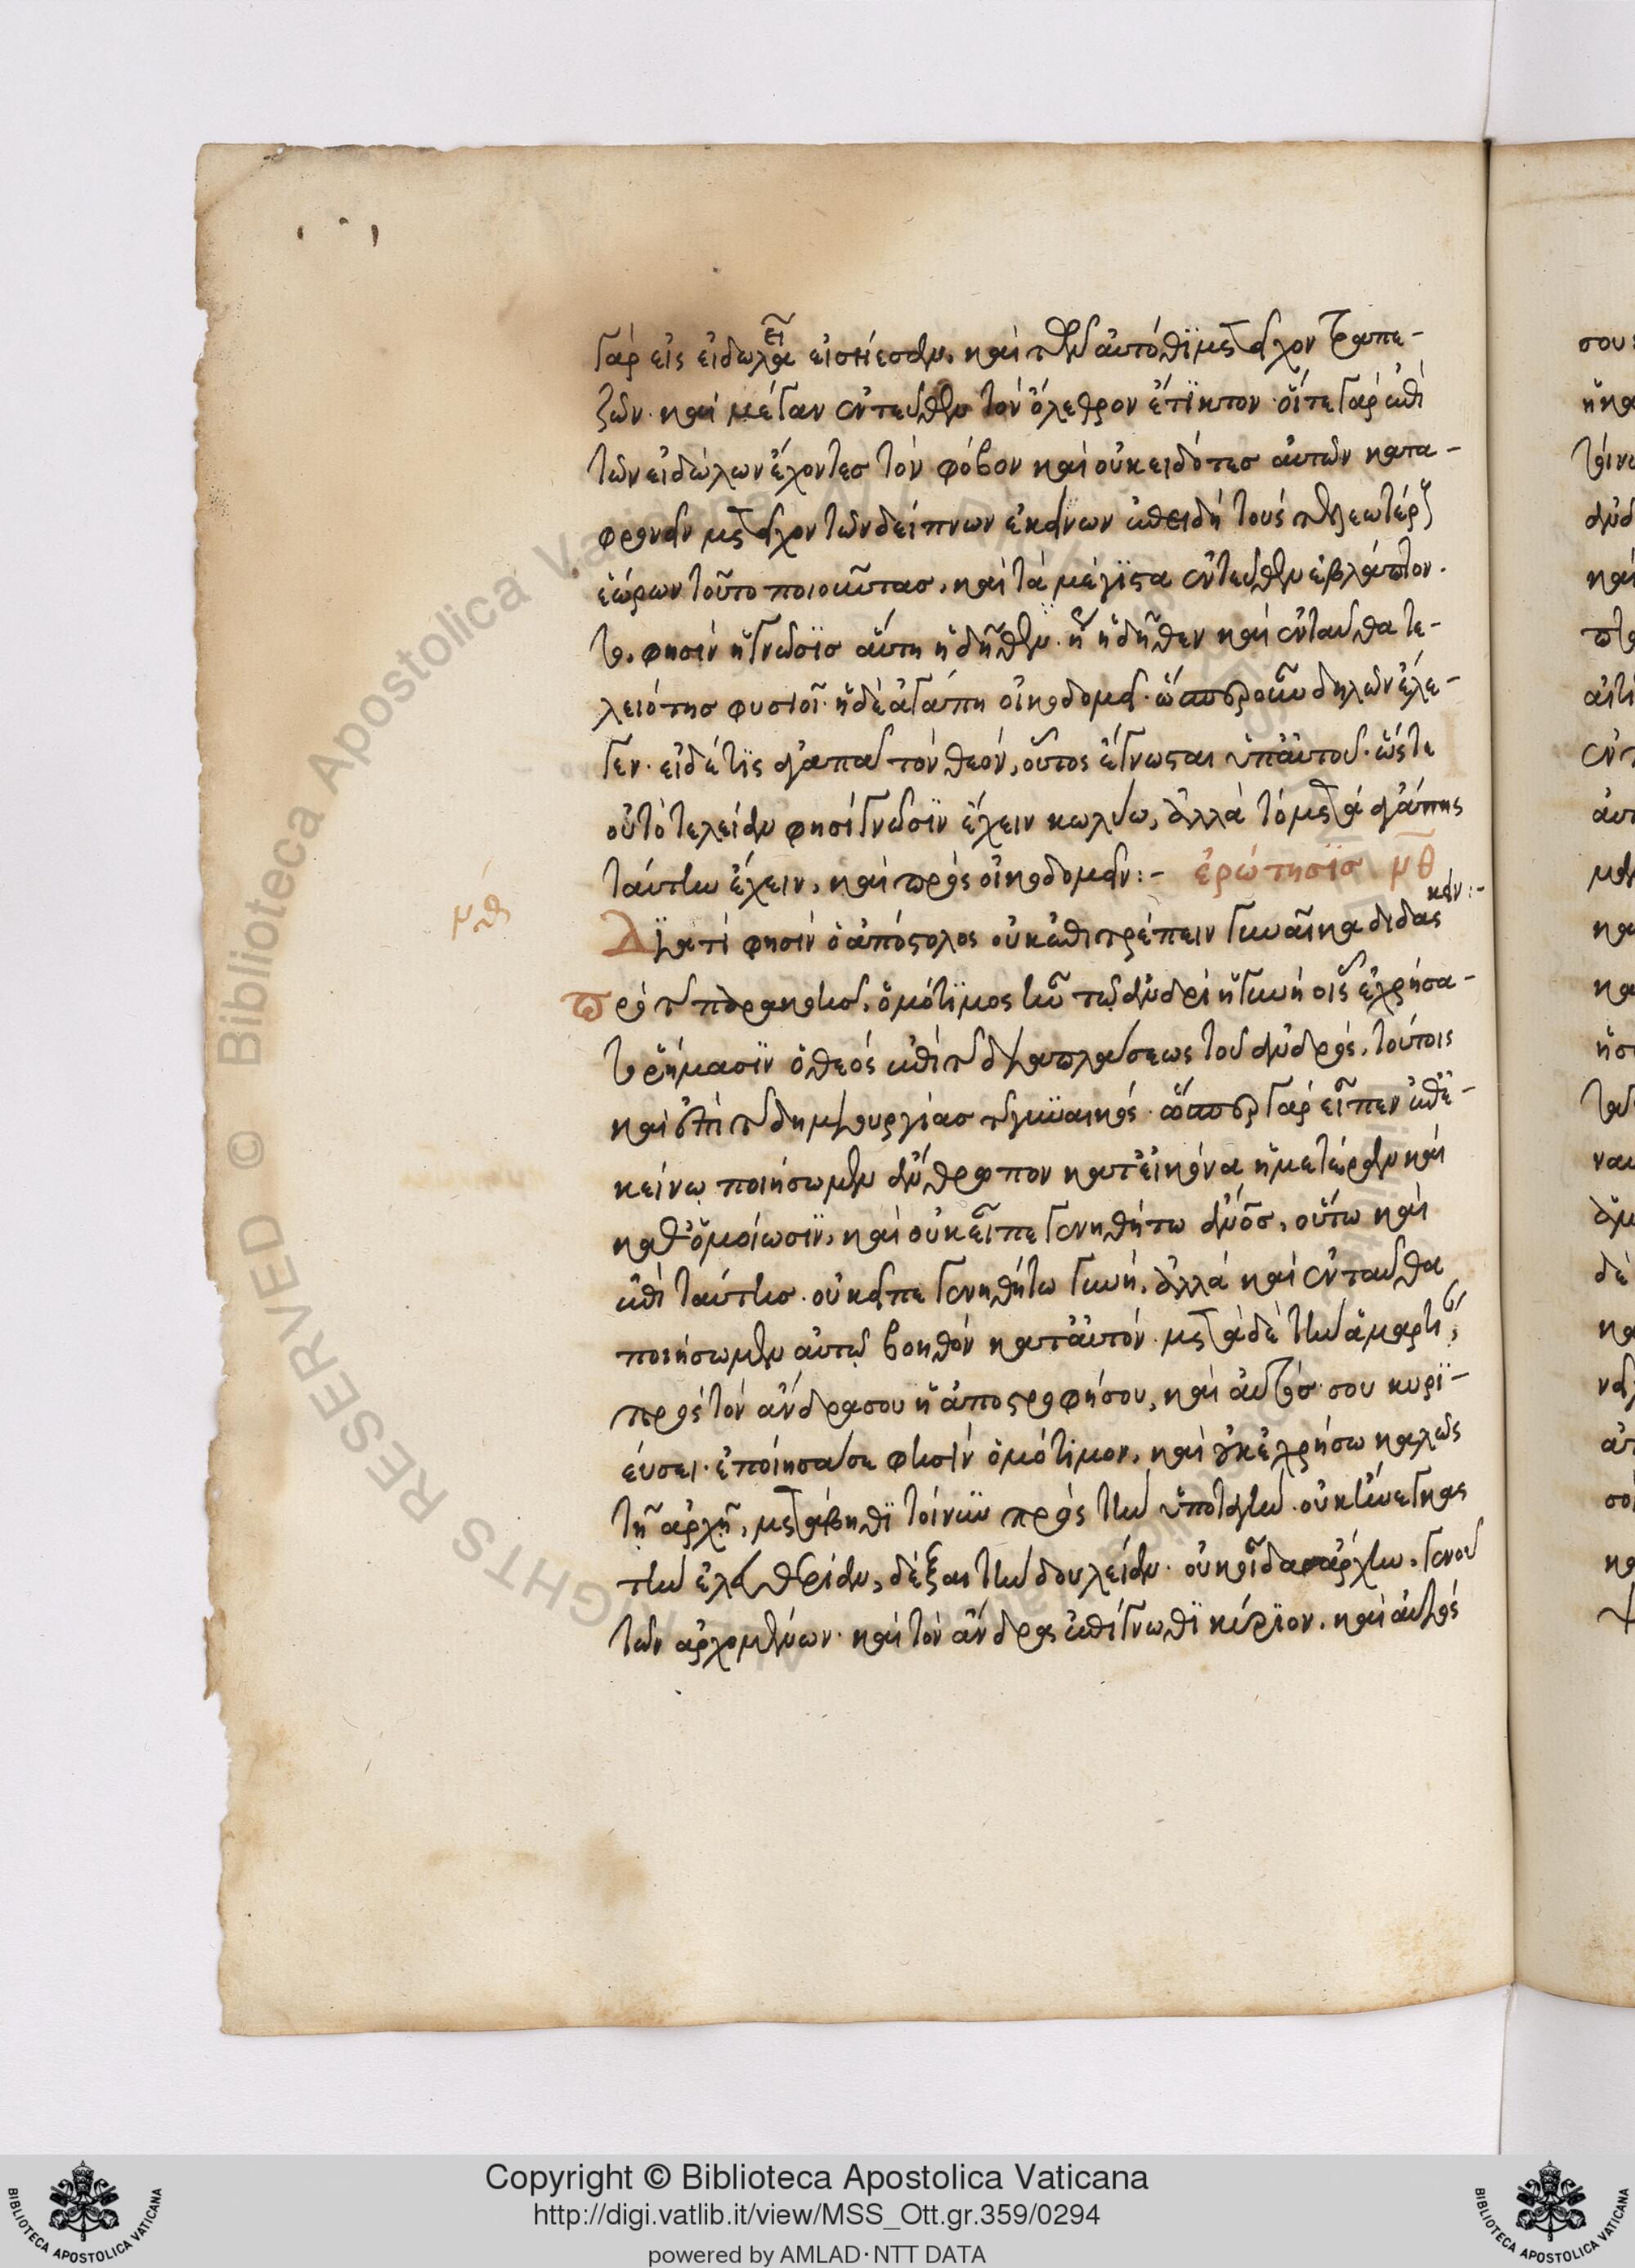 γὰρ εἰς εἰδωλεῖα εἰσιέσαν, καὶ τῶν αὐτόθι μετεῖχον τραπε-
ζῶν· καὶ μέγαν ἐντεῦθεν τὸν ὄλεθρον ἔτικτον· οἵ τε γὰρ ἔτι
τῶν εἰδώλων ἔχοντες τὸν φόβον καὶ οὐκ εἰδότες αὐτῶν κατα-
φρονεῖν μετεῖχον τῶν δείπνων ἐκείνων ἐπειδὴ τοὺς τελεωτέρους
ἑώρων τοῦτο ποιοῦντας, καὶ τὰ μέγιστα ἐντεῦθεν ἐβλάπτοντο.
φησὶν ἡ γνῶσις αὕτη ἡ δῆθεν· ἢ ἡ δῆθεν καὶ ἐνταῦθα τε-
λειότης φυσιοῖ· ἡ δὲ ἀγάπη οἰκοδομεῖ· ὥσπερ οὖν δηλῶν ἔλε-
γεν· εἰ δέ τις ἀγαπᾷ τὸν θεόν, οὗτος ἔγνωσται ὑπ' αὐτοῦ· ὥστε
οὐ τὸ τελείαν φησὶ γνῶσιν ἔχειν κωλύω, ἀλλὰ τὸ μετὰ ἀγάπης
ταύτην ἔχειν, καὶ πρὸς οἰκοδομήν:- ἐρώτησις μθ
μθ
Διατί φησὶν ὁ ἀπόστολος οὐκ ἐπιτρέπειν γυναῖκα διδάσκειν:-
Πρὸ τῆς παρακοῆς, ὁμότιμος ἦν τῷ ἀνδρὶ ἡ γυνή οἷς ἐχρήσα-
το ῥήμασιν ὁ θεὸς ἐπὶ τῆς διαπλάσεως τοῦ ἀνδρός, τούτοις
καὶ ἐπὶ τῆς δημιουργίας τῆς γυναικός· ὥσπερ γὰρ εἶπεν ἐπ' ἐ-
κείνῳ ποιήσωμεν ἄνθρωπον κατ' εἰκόνα ἡμετέραν καὶ
καθ' ὁμοίωσιν, καὶ οὐκ εἶπε γενηθήτω ἄνος, οὕτω καὶ
ἐπὶ ταύτης· οὐκ εἶπε γενηθήτω γυνή, ἀλλὰ καὶ ἐνταῦθα
ποιήσωμεν αὐτῷ βοηθὸν κατ' αὐτόν· μετὰ δὲ τὴν ἁμαρτίαν,
πρὸς τὸν ἄνδρα σου ἡ ἀποστροφή σου, καὶ αὐτός σου κυρι-
εύσει· ἐποίησά σε φησὶν ὁμότιμον, καὶ οὐκ ἐχρήσω καλῶς
τῇ ἀρχῇ, μετάβηθι τοίνυν πρὸς τὴν ὑποταγήν· οὐκ ἤνεγκας
τὴν ἐλευθερίαν, δέξαι τὴν δουλείαν· οὐκ οἶδας ἄρχειν, γενοῦ
τῶν ἀρχομένων· καὶ τὸν ἄνδρα ἐπίγνωθι κύριον, καὶ αὐτός
Copyright © Biblioteca Apostolica Vaticana
http://digi.vatlib.it/view/MSS_Ott.gr.359/0294
powered by AMLAD·NTT DATA